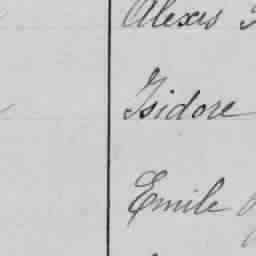 Alexis
Isidore
Emile